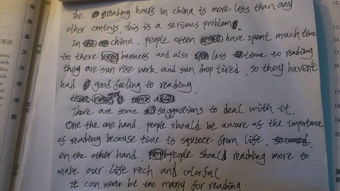 the reading hours in china is more less than any
other contrys, this is a serious problem.
In china. people often have spent much time
to there business and also less time to reading
they are sun rise work and sun drop tired. so they haven't
had good feeling to reading
There are some suggestions to deal with it.
One the one hand. people should be aware as the importance
as reading because time is squeeze from life.
on the other hand. people should reading more to
make our life rach and colorful
it can never be too many for reading